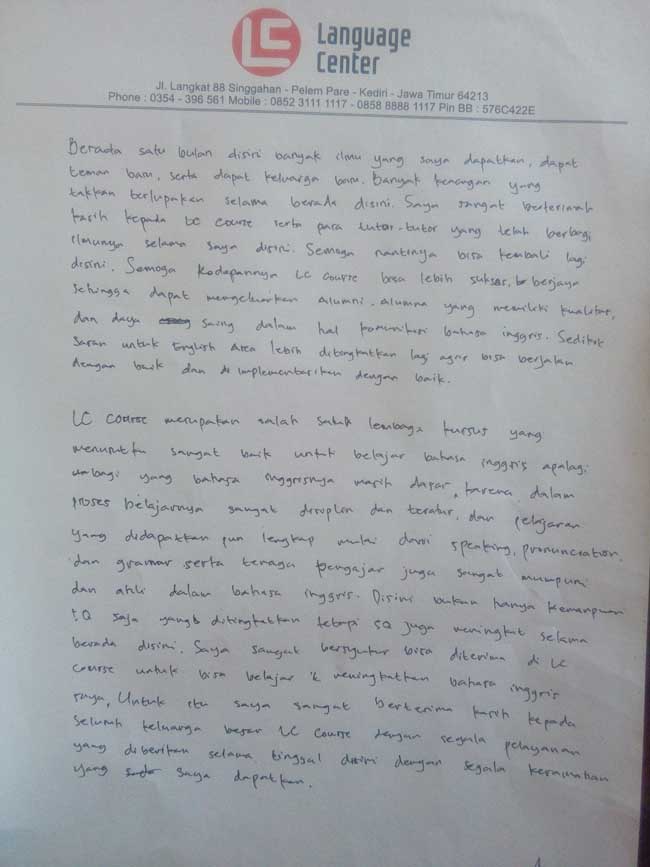 LC
Language
Center
Jl. Langkat 88 Singgahan - Pelem Pare - Kediri - Jawa Timur 64213
Phone : 0354 - 396 561 Mobile : 0852 3111 1117 - 0858 8888 1117 Pin BB : 576C422E
Berada satu bulan disini banyak ilmu yang saya dapatkan, dapat
teman baru, serta dapat keluarga baru. Banyak kenangan yang
takkan terlupakan selama berada disini. Saya sangat berterimah
kasih kepada LC Course serta para tutor-tutor yang telah berbagi
ilmunya selama saya disini. Semoga nantinya bisa kembali lagi
disini. Semoga kedepannya LC Course bisa lebih sukses, berjaya
sehingga dapat mengeluarkan Alumni-Alumna yang memiliki kualitas,
dan daya saing dalam hal komunikasi bahasa inggris. Sedikit
saran untuk English Area lebih ditingkatkan lagi agar bisa berjalan
dengan baik dan di implementasikan dengan baik.
LC Course merupakan salah satu lembaga kursus yang
menurutku sangat baik untuk belajar bahasa inggris apalagi
yang bahasa inggrisnya masih dasar, karena dalam
proses belajarnya sangat disiplin dan teratur, dan pelajaran
yang didapatkan pun lengkap mulai dari speaking, pronunciation,
dan grammar serta tenaga pengajar juga sangat mumpuni
dan ahli dalam bahasa inggris. Disini bukan hanya kemampuan
IQ saja yang ditingkatkan tetapi SQ juga meningkat selama
berada disini. Saya sangat bersyukur bisa diterima di LC
Course untuk bisa belajar & meningkatkan bahasa inggris
saya, Untuk itu saya sangat berterima kasih kepada
seluruh keluarga besar LC Course dengan segala pelayanan
yang diberikan selama tinggal disini dengan segala keramahan
yang saya dapatkan.